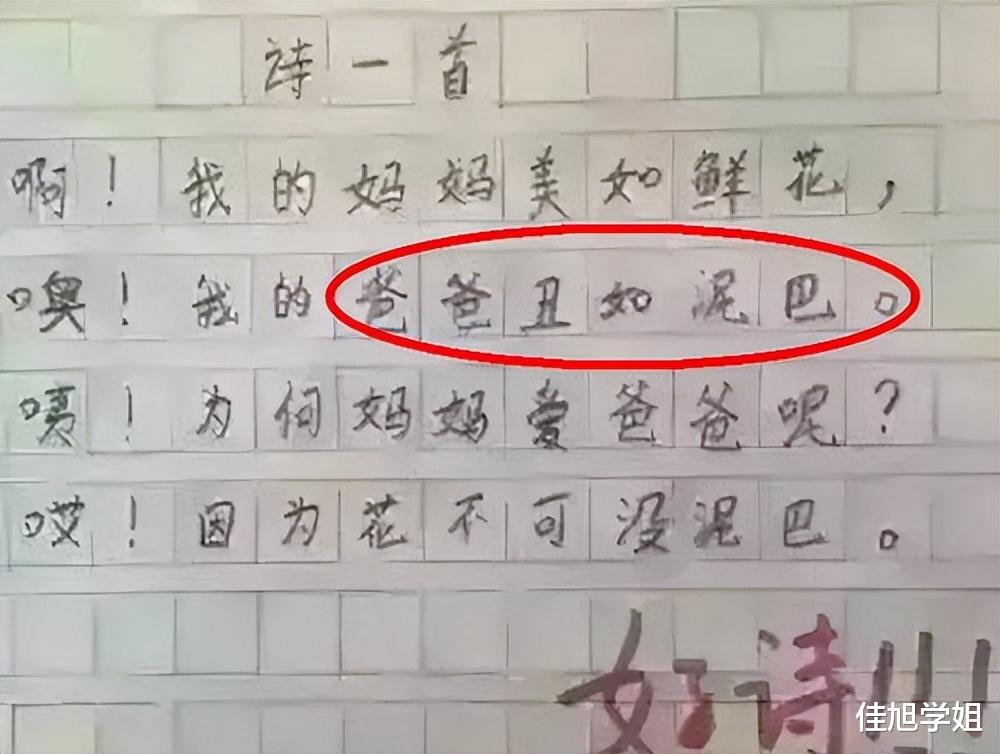 诗一首
啊！我的妈妈美如鲜花，
噢！我的爸爸丑如泥巴。
咦！为何妈妈爱爸爸呢？
哎！因为花不可没泥巴。
好诗!!!
佳旭学姐